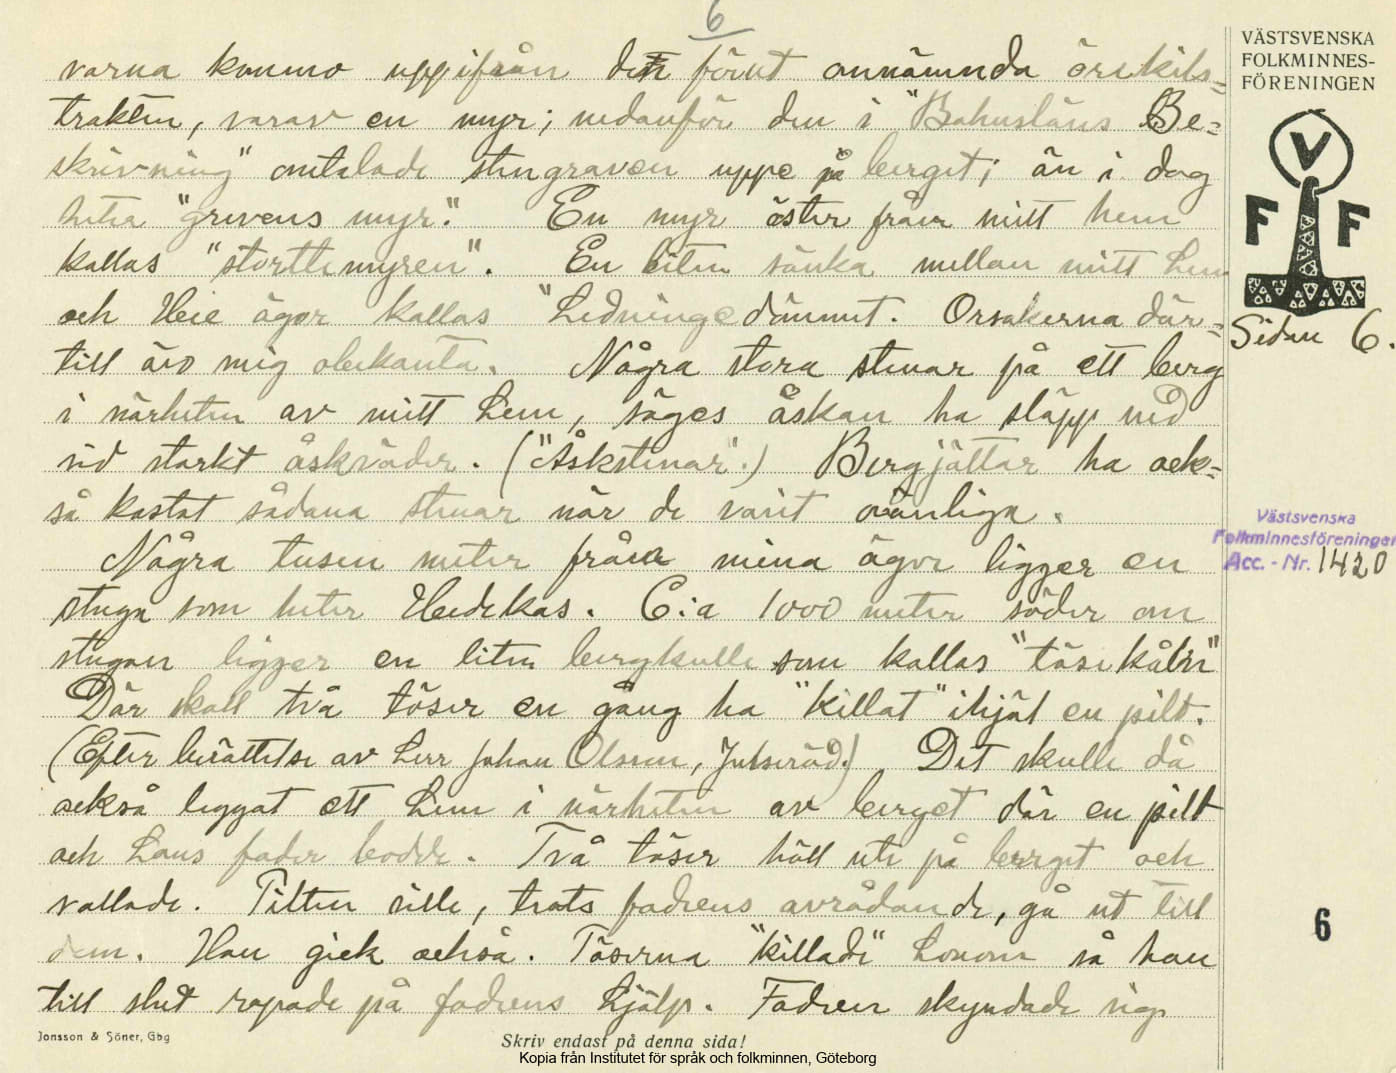 6
VÄSTSVENSKA
FOLKMINNES-
FÖRENINGEN
V
F F
Sidan 6.
Västsvenska
Folkminnesföreningen
Acc. - Nr. 1420
6
varna kommo uppifrån den förut omnämnda örekils=
trakten, varav en myr; nedanför den i "Bahusläns Be=
skrivning" omtalade stengraven uppe på berget; än i dag
heter "grevens myr". En myr öster från mitt hem
kallas "stortte myren". En liten sänka mellan mitt hem
och Heie ägor kallas "Ledningedämmet. Orsakerna där=
till äro mig obekanta. Några stora stenar på ett berg
i närheten av mitt hem, säges åskan ha släpp ned
vid starkt åskväder. ("Åskstenar".) Bergjättar ha ock=
så kastat sådana stenar när de varit ovänliga.
Några tusen meter från mina ägor ligger en
stuga som heter Hedekas. C:a 1000 meter söder om
stugan ligger en liten bergkulle som kallas "tösekålen"
Där skall två töser en gång ha "killat" ihjäl en pilt.
(Efter berättelse av herr Johan Olsson, Julseröd.) Det skulle då
också leggat ett hem i närheten av berget där en pilt
och hans fader bodde. Två töser höll ute på berget och
vallade. Pilten ville, trots fadrens avrådande, gå ut till
dem. Han gick också. Töserna "killade" honom så han
till slut ropade på fadrens hjälp. Fadren skyndade sig
Jonsson & Söner, Gbg
Skriv endast på denna sida!
Kopia från Institutet för språk och folkminnen, Göteborg